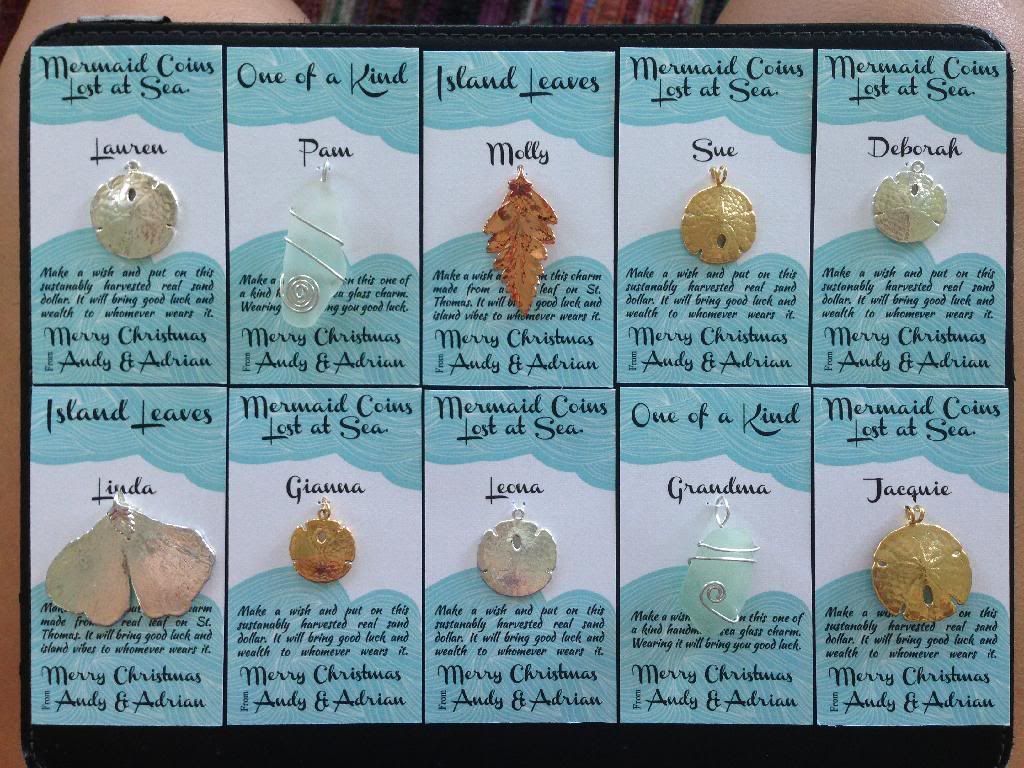 Mermaid Coins
Lost at Sea.
Lauren
Make a wish and put on this
sustanably harvested real sand
dollar. It will bring good luck and
wealth to whomever wears it.
Merry Christmas
From Andy & Adrian
One of a Kind
Pam
Make a n this one of
a kind h a glass charm.
Wearing ng you good luck.
Merry Christmas
From Andy & Adrian
Island Leaves
Molly
Make a wish a n this charm
made from a leaf on St.
Thomas. It will b good luck and
island vibes to whomever wears it.
Merry Christmas
From Andy & Adrian
Mermaid Coins
Lost at Sea.
Sue
Make a wish and put on this
sustanably harvested real sand
dollar. It will bring good luck and
wealth to whomever wears it.
Merry Christmas
From Andy & Adrian
Mermaid Coins
Lost at Sea.
Deborah
Make a wish and put on this
sustanably harvested real sand
dollar. It will bring good luck and
wealth to whomever wears it.
Merry Christmas
From Andy & Adrian
Island Leaves
Linda
Make charm
made from real leaf on St.
Thomas. It will bring good luck and
island vibes to whomever wears it.
Merry Christmas
From Andy & Adrian
Mermaid Coins
Lost at Sea.
Gianna
Make a wish and put on this
sustanably harvested real sand
dollar. It will bring good luck and
wealth to whomever wears it.
Merry Christmas
From Andy & Adrian
Mermaid Coins
Lost at Sea.
Leona
Make a wish and put on this
sustanably harvested real sand
dollar. It will bring good luck and
wealth to whomever wears it.
Merry Christmas
From Andy & Adrian
One of a Kind
Grandma
Make a wish n this one of
a kind handm sea glass charm.
Wearing it will bring you good luck.
Merry Christmas
From Andy & Adrian
Mermaid Coins
Lost at Sea.
Jacquie
Make a w on this
sustanably harvested real sand
dollar. It will bring good luck and
wealth to whomever wears it.
Merry Christmas
From Andy & Adrian